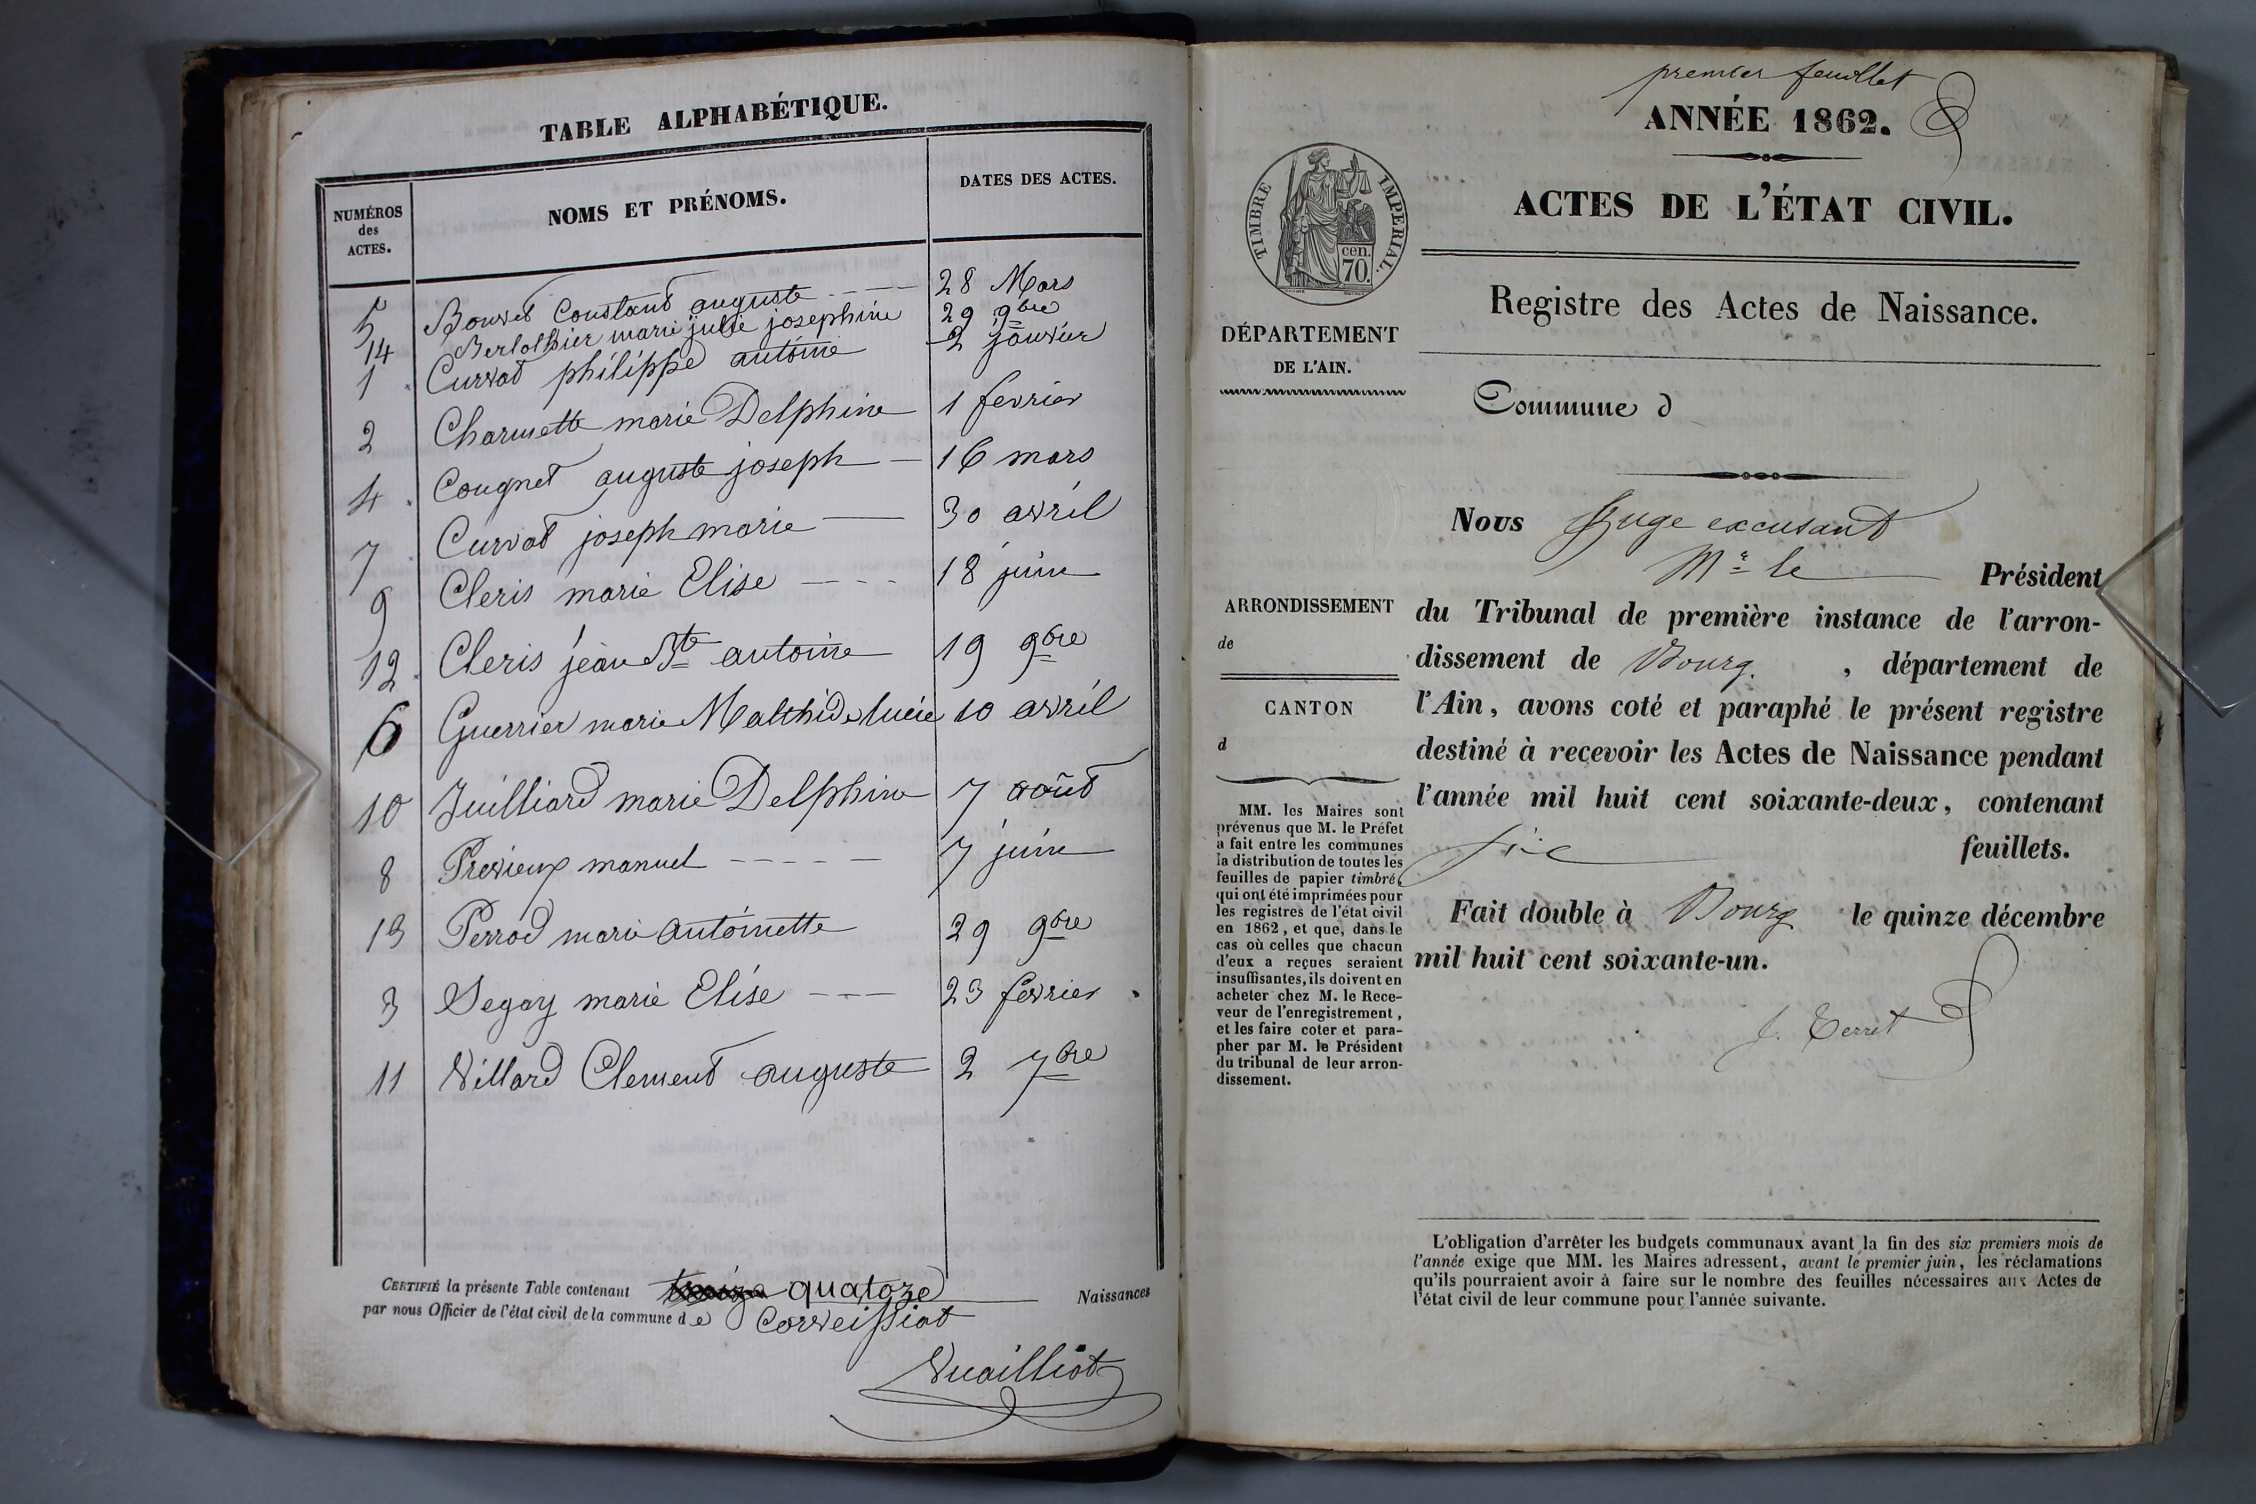 TABLE ALPHABÉTIQUE.
NUMÉROS des ACTES. NOMS ET PRÉNOMS. DATES DES ACTES.
5 Bouvet Constant auguste 28 Mars
14 Berlothier marie julie josephine 29 9bre
1 Curvat philippe antoine 2 janvier
2 Charnette marie Delphine 1 fevrier
4 Cougnet auguste joseph 16 mars
7 Curvat joseph marie 30 avril
9 Cleris marie Elise 18 juin
12 Cleris jean Bte antoine 19 9bre
6 Guerrier marie Malthide lucie 10 avril
10 Juilliard marie Delphine 7 août
8 Previeux manuel 7 juin
13 Perrod marie antoinette 29 9bre
3 Segay marie Elise 23 fevrier
11 Villard Clement auguste 2 7bre
CERTIFIÉ la présente Table contenant treize quatoze Naissances
par nous Officier de l'état civil de la commune de Corveissiat
Vuailliat
premier feuillet
ANNÉE 1862.
ACTES DE L'ÉTAT CIVIL.
Registre des Actes de Naissance.
TIMBRE IMPÉRIAL.
cen.
70.
DÉPARTEMENT
DE L'AIN.
Commune d
ARRONDISSEMENT
de
CANTON
d
MM. les Maires sont
prévenus que M. le Préfet
a fait entre les communes
la distribution de toutes les
feuilles de papier timbré,
qui ont été imprimées pour
les registres de l'état civil
en 1862, et que, dans le
cas où celles que chacun
d'eux a reçues seraient
insuffisantes, ils doivent en
acheter chez M. le Rece-
veur de l'enregistrement,
et les faire coter et para-
pher par M. le Président
du tribunal de leur arron-
dissement.
Nous Juge excusant
Mr le Président
du Tribunal de première instance de l'arron-
dissement de Bourg, département de
l'Ain, avons coté et paraphé le présent registre
destiné à recevoir les Actes de Naissance pendant
l'année mil huit cent soixante-deux, contenant
six feuillets.
Fait double à Bourg le quinze décembre
mil huit cent soixante-un.
J. Terret
L'obligation d'arrêter les budgets communaux avant la fin des six premiers mois de
l'année exige que MM. les Maires adressent, avant le premier juin, les réclamations
qu'ils pourraient avoir à faire sur le nombre des feuilles nécessaires aux Actes de
l'état civil de leur commune pour l'année suivante.